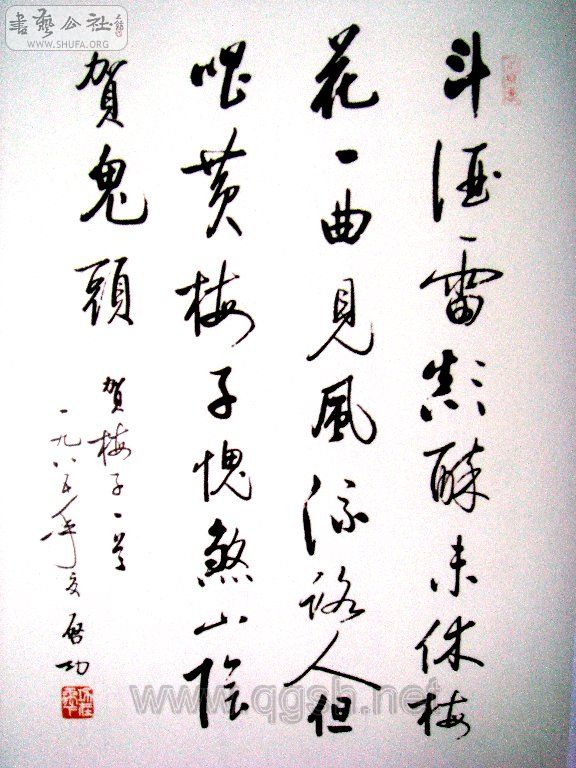 書藝公社
WWW.SHUFA.ORG
斗酒雷顛醉未休梅
花一曲見風流路人但
唱黄梅子愧煞山陰
賀鬼頭
賀梅子一首
一九八五年夏 啓功
www.qgsh.net